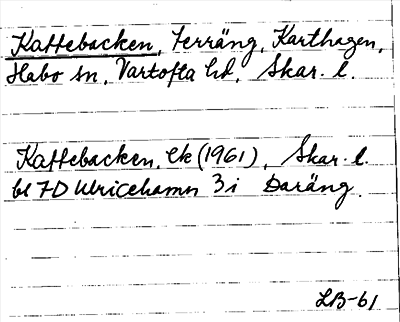 Kattebacken, Terräng, Karthagen,
Habo sn, Vartofta hd, Skar. l.
Kattebacken, Ek (1961), Skar. l.
bl 7D Ulricehamn 3i Daräng.
LB-61